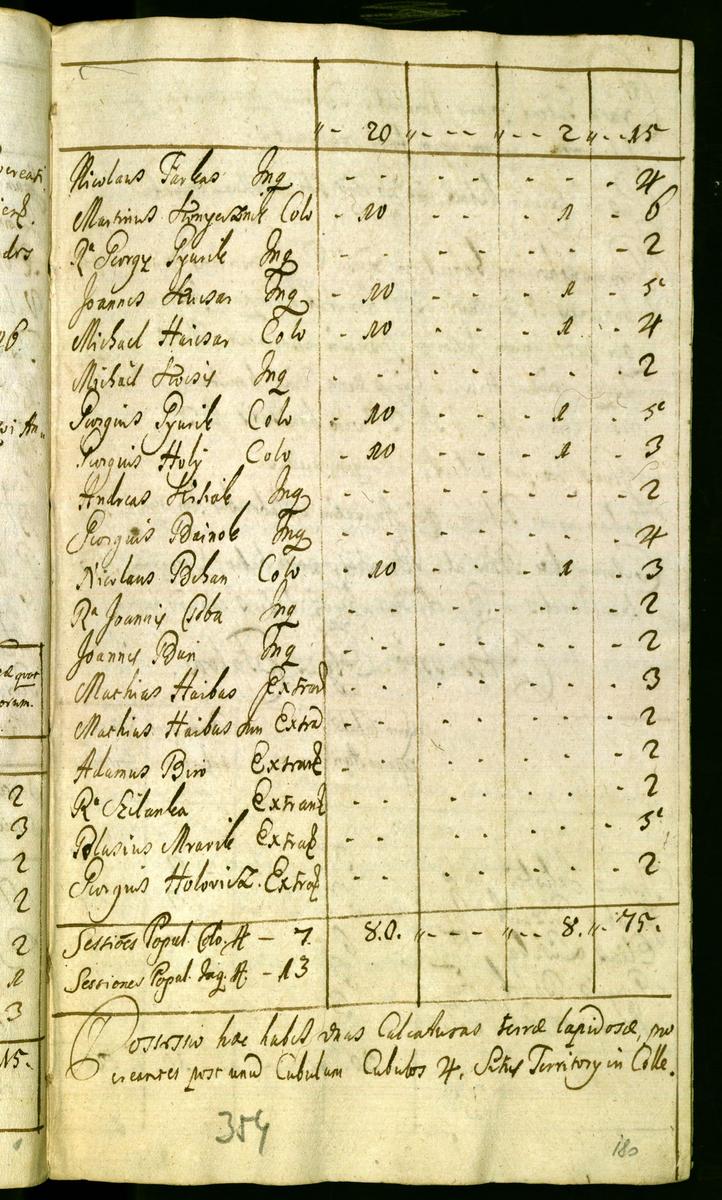 „ - 20 „ - - - „ - - 2 „ - - 15
Nicolaus Farkas Inq - - - - - - - 4
Martinus Colo - 10 - - - - 1 - 6
Ra Georgy Gyurik Inq - - - - - - - 2
Joannes Huisar Inq - 10 - - - - 1 - 5
Michael Huisar Colo - 10 - - - - 1 - 4
Michael Inq - - - - - - - 2
Georgius Gyurik Colo - 10 - - - - 1 - 5
Georgius Holy Colo - 10 - - - - 1 - 3
Andreas Inq - - - - - - - 2
Georgius Bainok Inq - - - - - - - 4
Nicolaus Behan Colo - 10 - - - - 1 - 3
Ra Joannis Inq - - - - - - - 2
Joannes Inq - - - - - - - 2
Mathias Haibas Extran - - - - - - - 3
Mathias Haibas Jun Extra - - - - - - - 2
Adamus Biro Extran - - - - - - - 2
Ra Szilanka Extran - - - - - - - 2
Blasius Mravik Extra - - - - - - - 5
Georgius Holovicz. Extra - - - - - - - 2
Sessiões Popul. Colo. 4 - 7. 80. „ - - - „ - - 8. „ 75.
Sessiones Popul. Inq. 4 - 13
Possessio hæc habet Calcaturas terræ lapidosæ, pro
creantes post unũ Cubulum Cubulos 4. Situs Territory in Colle.
354
180
2
3
2
2
2
1
3
15.